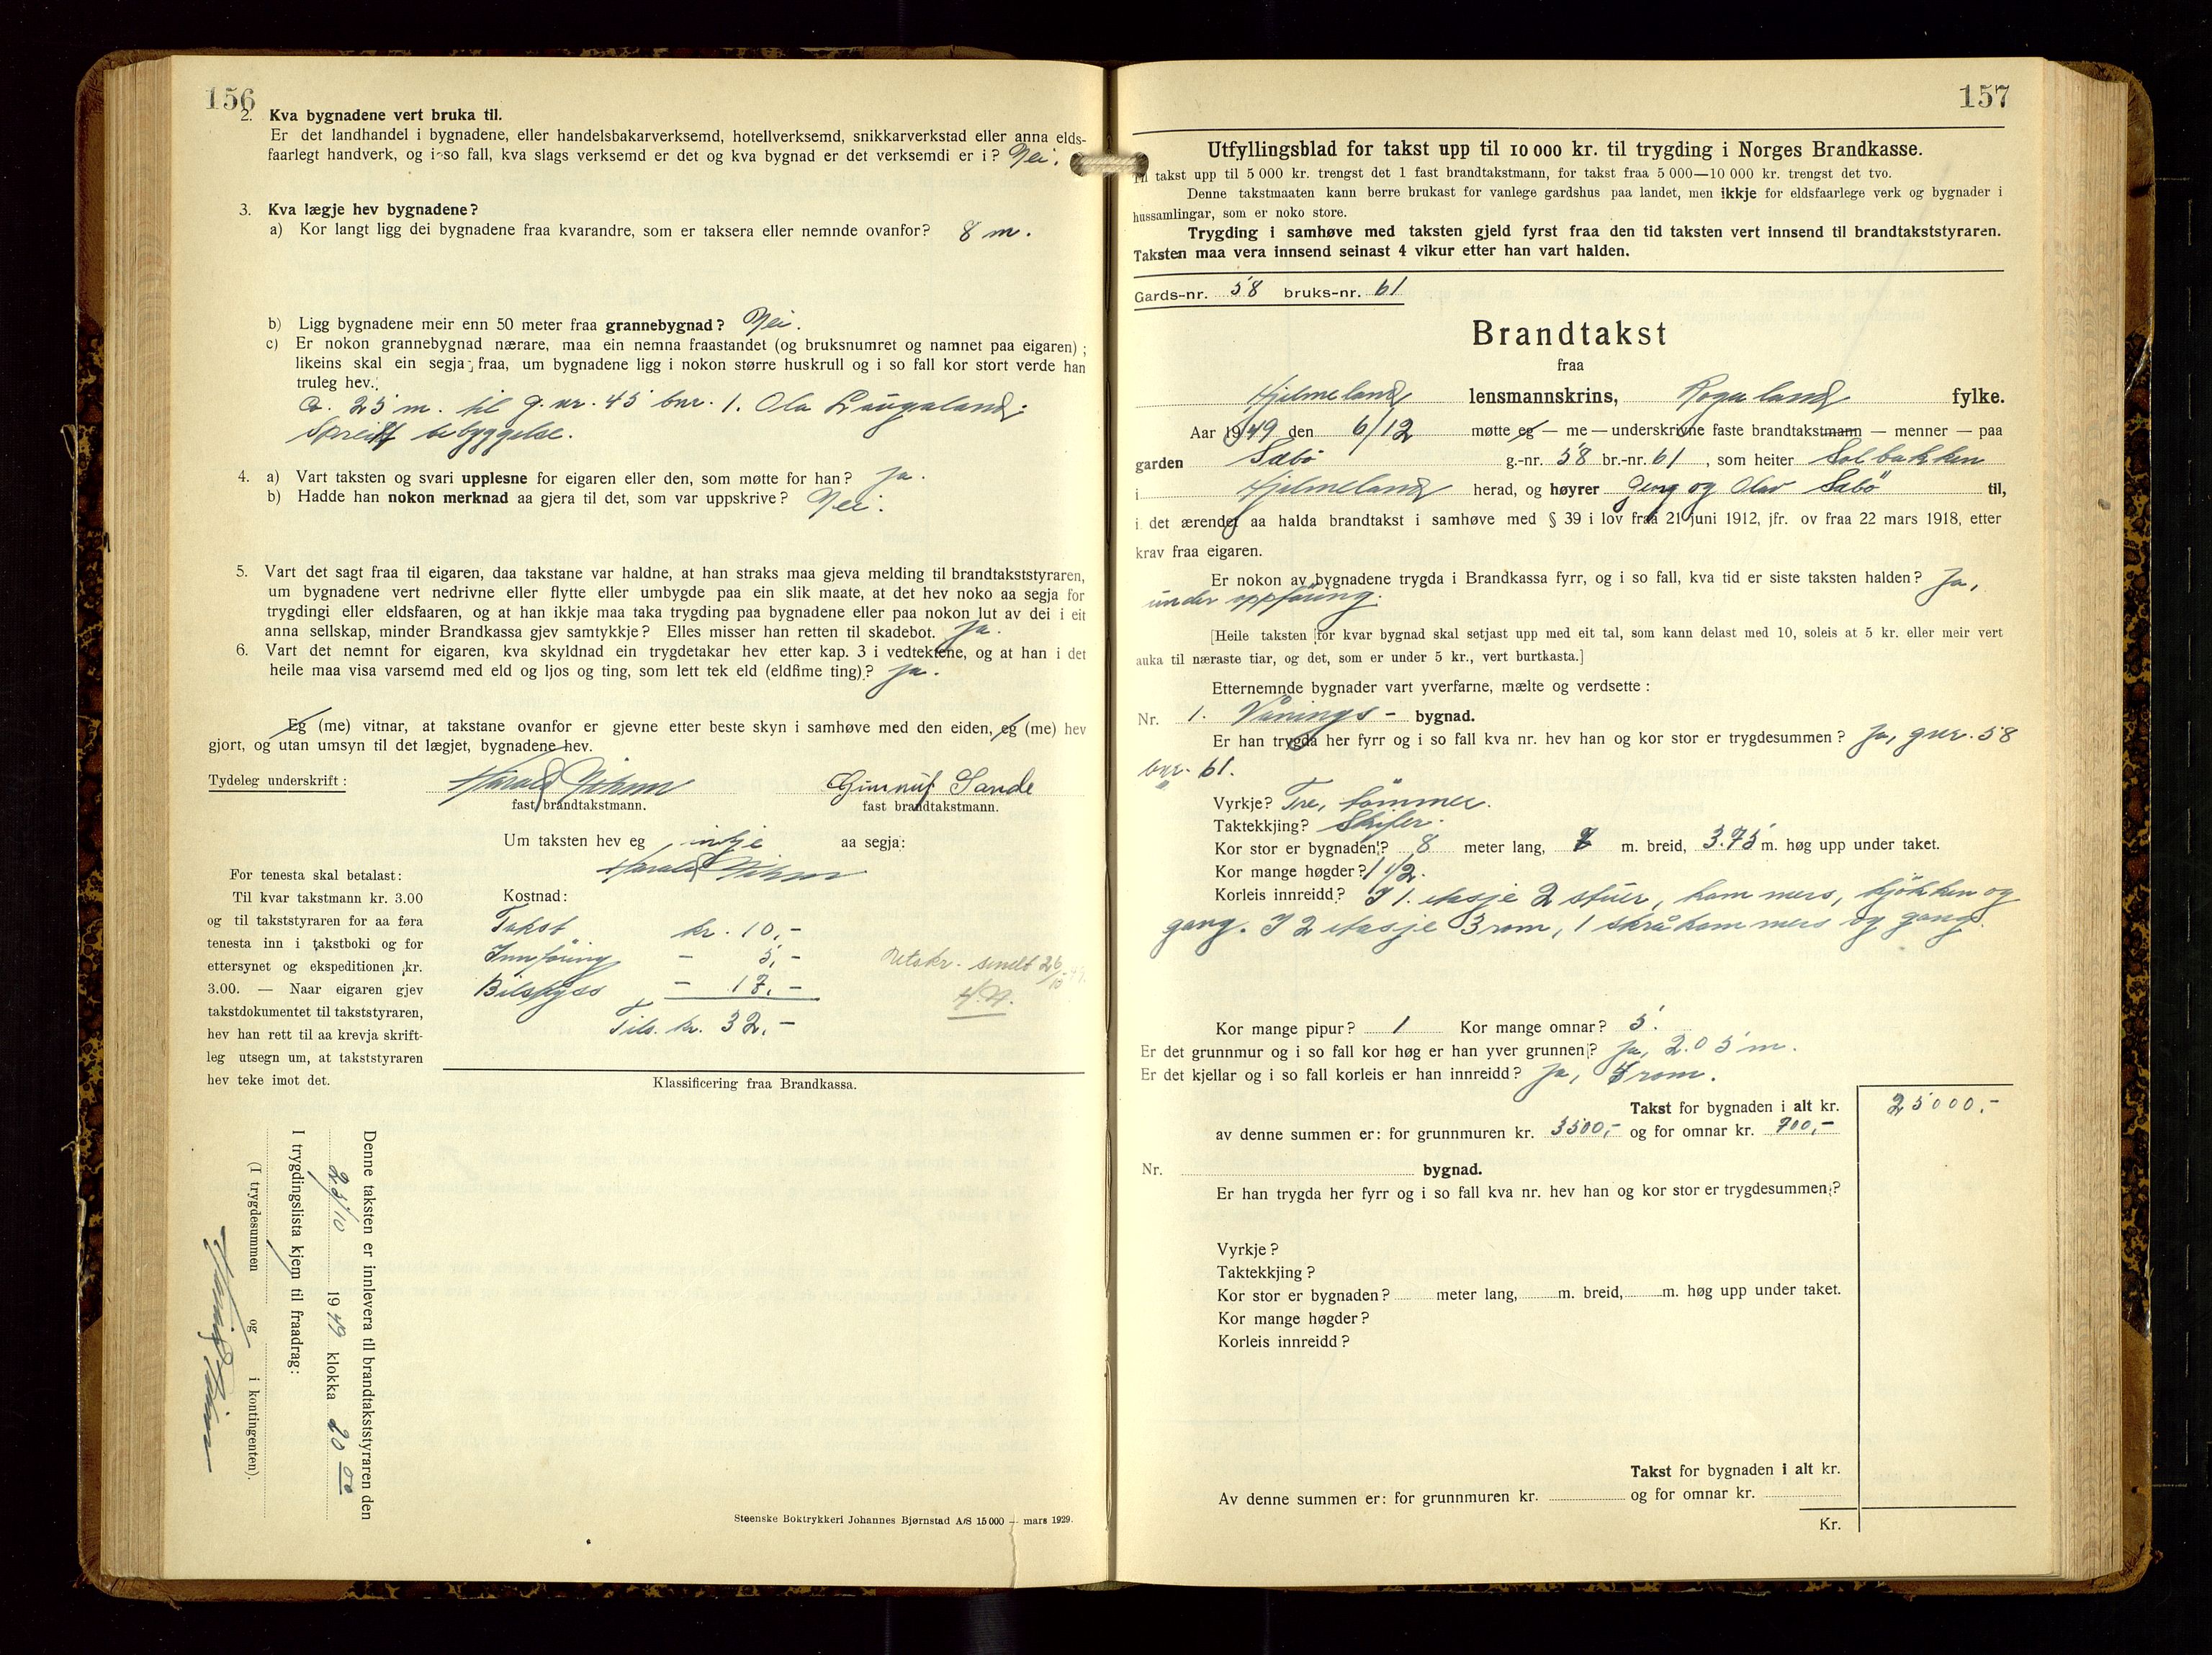 156
2. Kva bygnadene vert bruka til.
Er det landhandel i bygnadene, eller handelsbakarverksemd, hotellverksemd, snikkarverkstad eller anna elds-
faarlegt handverk, og i so fall, kva slags verksemd er det og kva bygnad er det verksemdi er i? Nei.
3. Kva lægje hev bygnadene?
a) Kor langt ligg dei bygnadene fraa kvarandre, som er taksera eller nemnde ovanfor? 8 m.
b) Ligg bygnadene meir enn 50 meter fraa grannebygnad? Nei.
c) Er nokon grannebygnad nærare, maa ein nemna fraastandet (og bruksnumret og namnet paa eigaren);
likeins skal ein segja fraa, um bygnadene ligg i nokon større huskrull og i so fall kor stort verde han
truleg hev.
Ca. 25 m. til g.nr. 45 bnr. 1. Ola Laugaland.
Spreidt bebyggelse.
4. a) Vart taksten og svari upplesne for eigaren eller den, som møtte for han? Ja.
b) Hadde han nokon merknad aa gjera til det, som var uppskrive? Nei.
5. Vart det sagt fraa til eigaren, daa takstane var haldne, at han straks maa gjeva melding til brandtakststyraren,
um bygnadene vert nedrivne eller flytte eller umbygde paa ein slik maate, at det hev noko aa segja for
trygdingi eller eldsfaaren, og at han ikkje maa taka trygding paa bygnadene eller paa nokon lut av dei i eit
anna sellskap, minder Brandkassa gjev samtykkje? Elles misser han retten til skadebot. Ja.
6. Vart det nemnt for eigaren, kva skyldnad ein trygdetakar hev etter kap. 3 i vedtektene, og at han i det
heile maa visa varsemd med eld og ljos og ting, som lett tek eld (eldfime ting)? Ja.
Eg (me) vitnar, at takstane ovanfor er gjevne etter beste skyn i samhøve med den eiden, eg (me) hev
gjort, og utan umsyn til det lægjet, bygnadene hev.
Tydeleg underskrift: Harald Gunnulf Sande
fast brandtakstmann. fast brandtakstmann.
Um taksten hev eg inkje aa segja:
Harald
For tenesta skal betalast:
Til kvar takstmann kr. 3.00
og til takststyraren for aa føra
tenesta inn i takstboki og for
ettersynet og ekspeditionen kr.
3.00. — Naar eigaren gjev
takstdokumentet til takststyraren,
hev han rett til aa krevja skrift-
leg utsegn um, at takststyraren
hev teke imot det.
Kostnad:
Takst kr. 10,-
Innføring - 5,-
Bilskyss - 17,-
Tils. kr. 32,-
Utskr. sendt 26/10-49.
H.N.
Klassificering fraa Brandkassa.
Denne taksten er innlevera til brandtakststyraren den
25/10 1949 klokka 20 00
I trygdingslista kjem til fraadrag:
(I trygdesummen og i kontingenten).
Harald
Steenske Boktrykkeri Johannes Bjørnstad A/S 15 000 — mars 1929.
157
Utfyllingsblad for takst upp til 10 000 kr. til trygding i Norges Brandkasse.
Til takst upp til 5 000 kr. trengst det 1 fast brandtakstmann, for takst fraa 5 000—10 000 kr. trengst det tvo.
Denne takstmaaten kann berre brukast for vanlege gardshus paa landet, men ikkje for eldsfaarlege verk og bygnader i
hussamlingar, som er noko store.
Trygding i samhøve med taksten gjeld fyrst fraa den tid taksten vert innsend til brandtakststyraren.
Taksten maa vera innsend seinast 4 vikur etter han vart halden.
Gards-nr. 58 bruks-nr. 61
Brandtakst
fraa
Hjelmeland lensmannskrins, Rogaland fylke.
Aar 1949 den 6/12 møtte eg — me — underskrivne faste brandtakstmann — menner — paa
garden Sæbø g.-nr. 58 br.-nr. 61, som heiter Solbakken
i Hjelmeland herad, og høyrer og Olav Sæbø til,
i det ærendet aa halda brandtakst i samhøve med § 39 i lov fraa 21 juni 1912, jfr. ov fraa 22 mars 1918, etter
krav fraa eigaren.
Er nokon av bygnadene trygda i Brandkassa fyrr, og i so fall, kva tid er siste taksten halden? Ja,
under oppføring.
[Heile taksten for kvar bygnad skal setjast upp med eit tal, som kann delast med 10, soleis at 5 kr. eller meir vert
auka til næraste tiar, og det, som er under 5 kr., vert burtkasta.]
Etternemnde bygnader vart yverfarne, mælte og verdsette:
Nr. 1. Vånings- bygnad.
Er han trygda her fyrr og i so fall kva nr. hev han og kor stor er trygdesummen? Ja, gnr. 58
bnr. 61.
Vyrkje? Tre, tømmer.
Taktekkjing? Skifer.
Kor stor er bygnaden? 8 meter lang, 7 m. breid, 3.75 m. høg upp under taket.
Kor mange høgder? 1 1/2.
Korleis innreidd? I 1. etasje 2 stuer, kammers, kjøkken og
gang. I 2 etasje 3 rom, 1 skråkammers og gang.
Kor mange pipur? 1 Kor mange omnar? 5.
Er det grunnmur og i so fall kor høg er han yver grunnen? Ja, 2.05 m.
Er det kjellar og i so fall korleis er han innreidd? Ja, 4 rom.
Takst for bygnaden i alt kr. 25000,-
av denne summen er: for grunnmuren kr. 3500,- og for omnar kr. 700,-
Nr. bygnad.
Er han trygda her fyrr og i so fall kva nr. hev han og kor stor er trygdesummen?
Vyrkje?
Taktekkjing?
Kor stor er bygnaden? meter lang, m. breid, m. høg upp under taket.
Kor mange høgder?
Korleis innreidd?
Takst for bygnaden i alt kr.
Av denne summen er: for grunnmuren kr. og for omnar kr.
Kr.